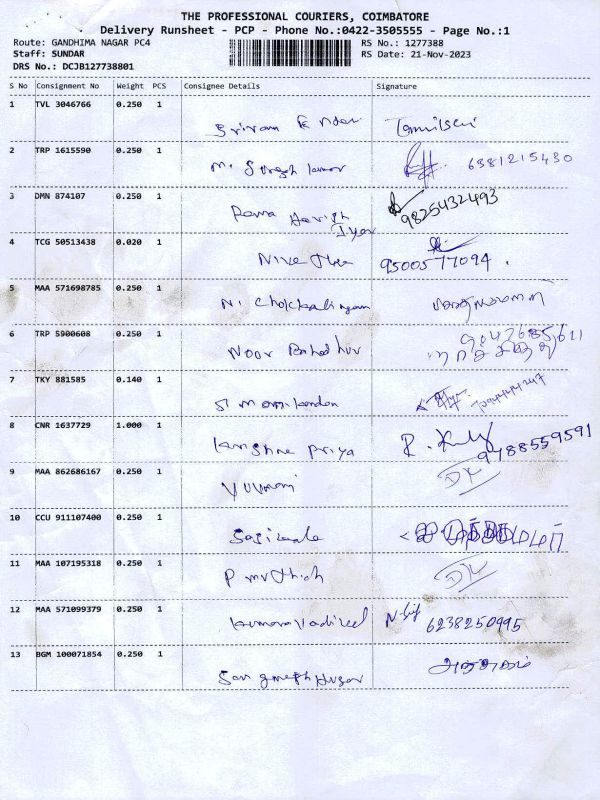 THE PROFESSIONAL COURIERS, COIMBATORE
Delivery Runsheet - PCP - Phone No.:0422-3505555 - Page No.:1
Route: GANDHIMA NAGAR PC4
RS No.: 1277388
Staff: SUNDAR
RS Date: 21-Nov-2023
DRS No.: DCJB127738801
S No Consignment No Weight PCS Consignee Details Signature
1 TVL 3046766 0.250 1
Sriram
2 TRP 1615590 0.250 1
M. Suresh kumar 6381215430
3 DMN 874107 0.250 1
Rama Harish 9825432493
Iyer
4 TCG 50513438 0.020 1
Nivetha 9500577094.
5 MAA 571698785 0.250 1
N. Chokkalingam
6 TRP 5900608 0.250 1
Noor Bahadhur
7 TKY 881585 0.140 1
S Manikandan
8 CNR 1637729 1.000 1
Krishna Priya 9488559591
9 MAA 862686167 0.250 1
Yuvarani
10 CCU 911107400 0.250 1
Sasikala
11 MAA 107195318 0.250 1
12 MAA 571099379 0.250 1
Kumaravadivel 6238250995
13 BGM 100071854 0.250 1